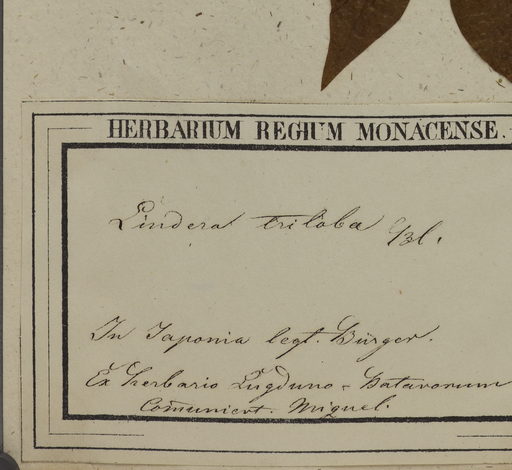 HERBARIUM REGIUM MONACENSE.
Lindera triloba Bl.
In Japonia legt. Bürger.
Ex herbario Lugduno-Batavorum
Com̄unicvt. Miquel.